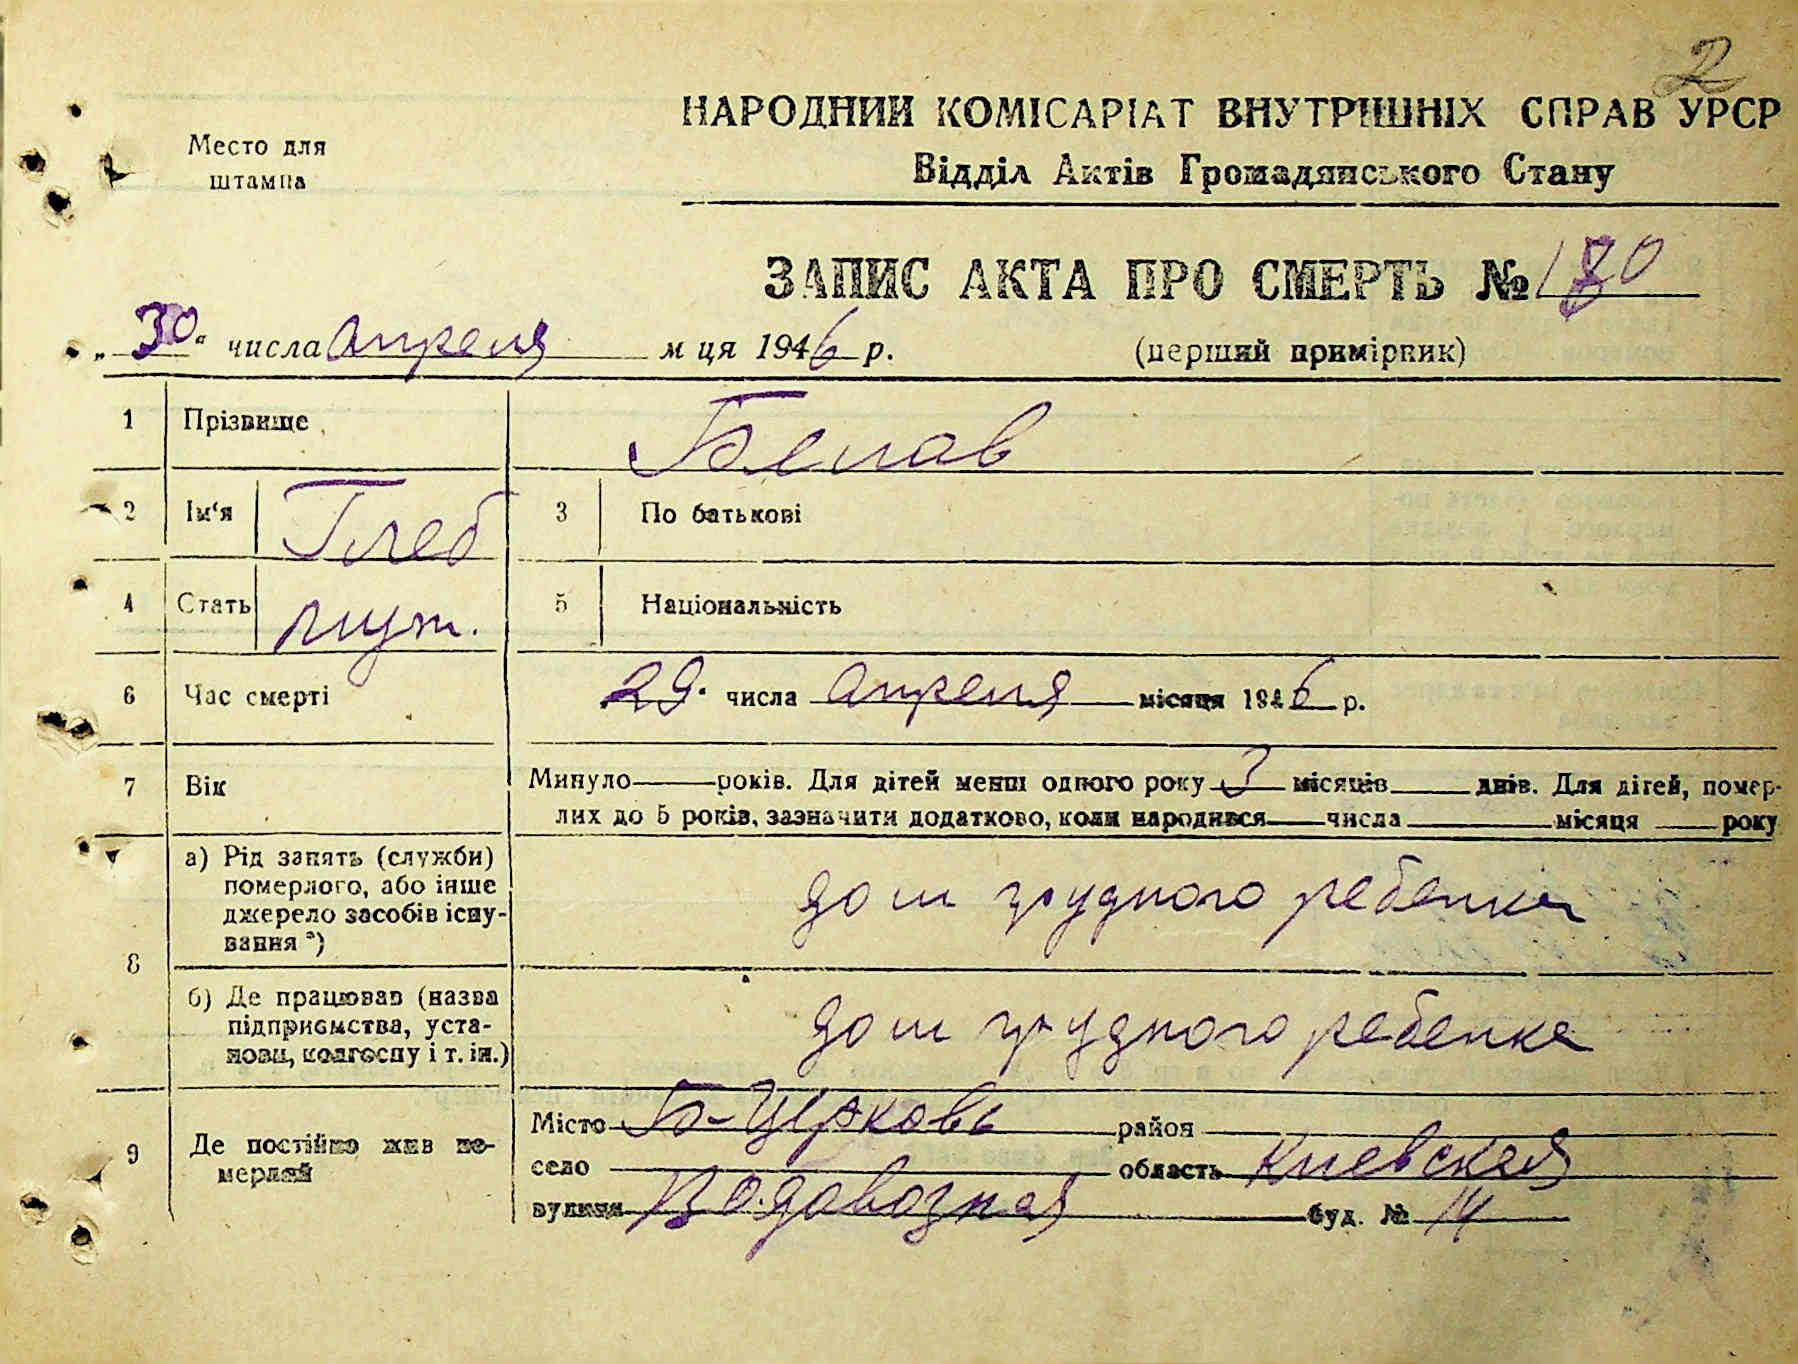 2
НАРОДНИЙ КОМІСАРІАТ ВНУТРІШНІХ СПРАВ УРСР
Место для
штампа
Відділ Актів Громадянського Стану
ЗАПИС АКТА ПРО СМЕРТЬ № 180
„30“ числа апреля м ця 1946 р. (перший примірник)
1 Прізвище Белав
2 Ім‘я Глеб 3 По батькові
4 Стать муж. 5 Національність
6 Час смерті 29. числа апреля місяця 1946 р.
7 Вік Минуло років. Для дітей менш одного року 3 місяців днів. Для дітей, помер-
лих до 5 років, зазначити додатково, коли народився числа місяця року
8
а) Рід занять (служби)
померлого, або інше
джерело засобів існу-
вання *)
дом грудного ребенка
б) Де працював (назва
підприємства, уста-
нови, колгоспу і т. ін.)
дом грудного ребенка
9 Де постійно жив по-
мерлий
Місто Б-Церковь район
село область Киевская
вулиця Водавозная буд. № 14